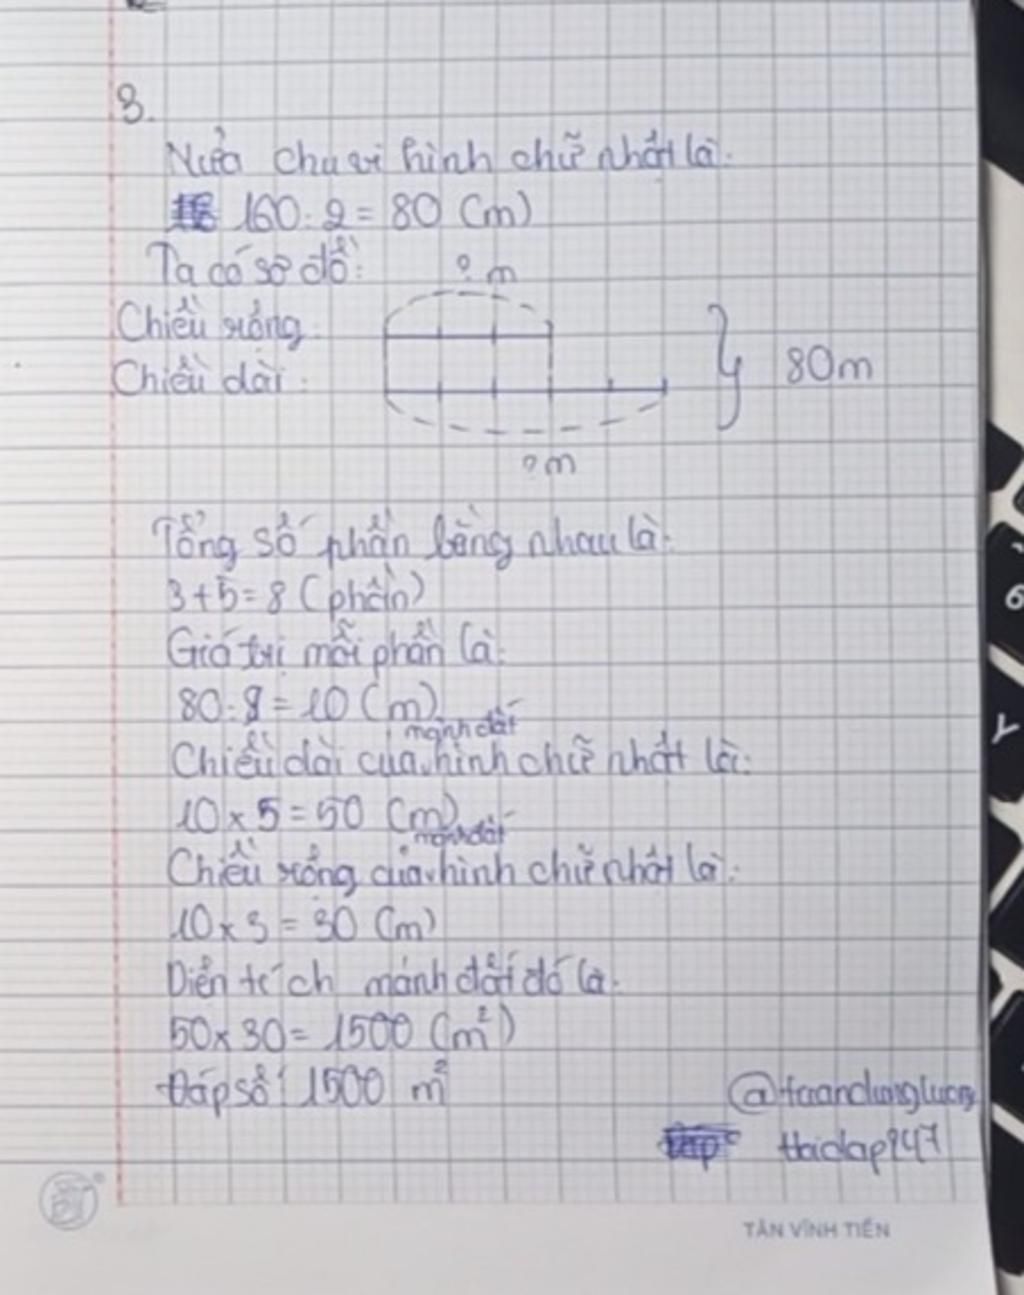 3.
Nửa chu vi hình chữ nhật là:
160 : 2 = 80 (m)
Ta có sơ đồ:
? m
Chiều rộng
Chiều dài :
80m
? m
Tổng số phần bằng nhau là:
3 + 5 = 8 (phần)
Giá trị mỗi phần là:
80 : 8 = 10 (m)
mảnh đất
Chiều dài của hình chữ nhật là:
10 x 5 = 50 (m)
mảnh đất
Chiều rộng của hình chữ nhật là:
10 x 3 = 30 (m)
Diện tích mảnh đất đó là:
50 x 30 = 1500 (m²)
Đáp số: 1500 m²
haidap247
TÂN VĨNH TIẾN
6
Y